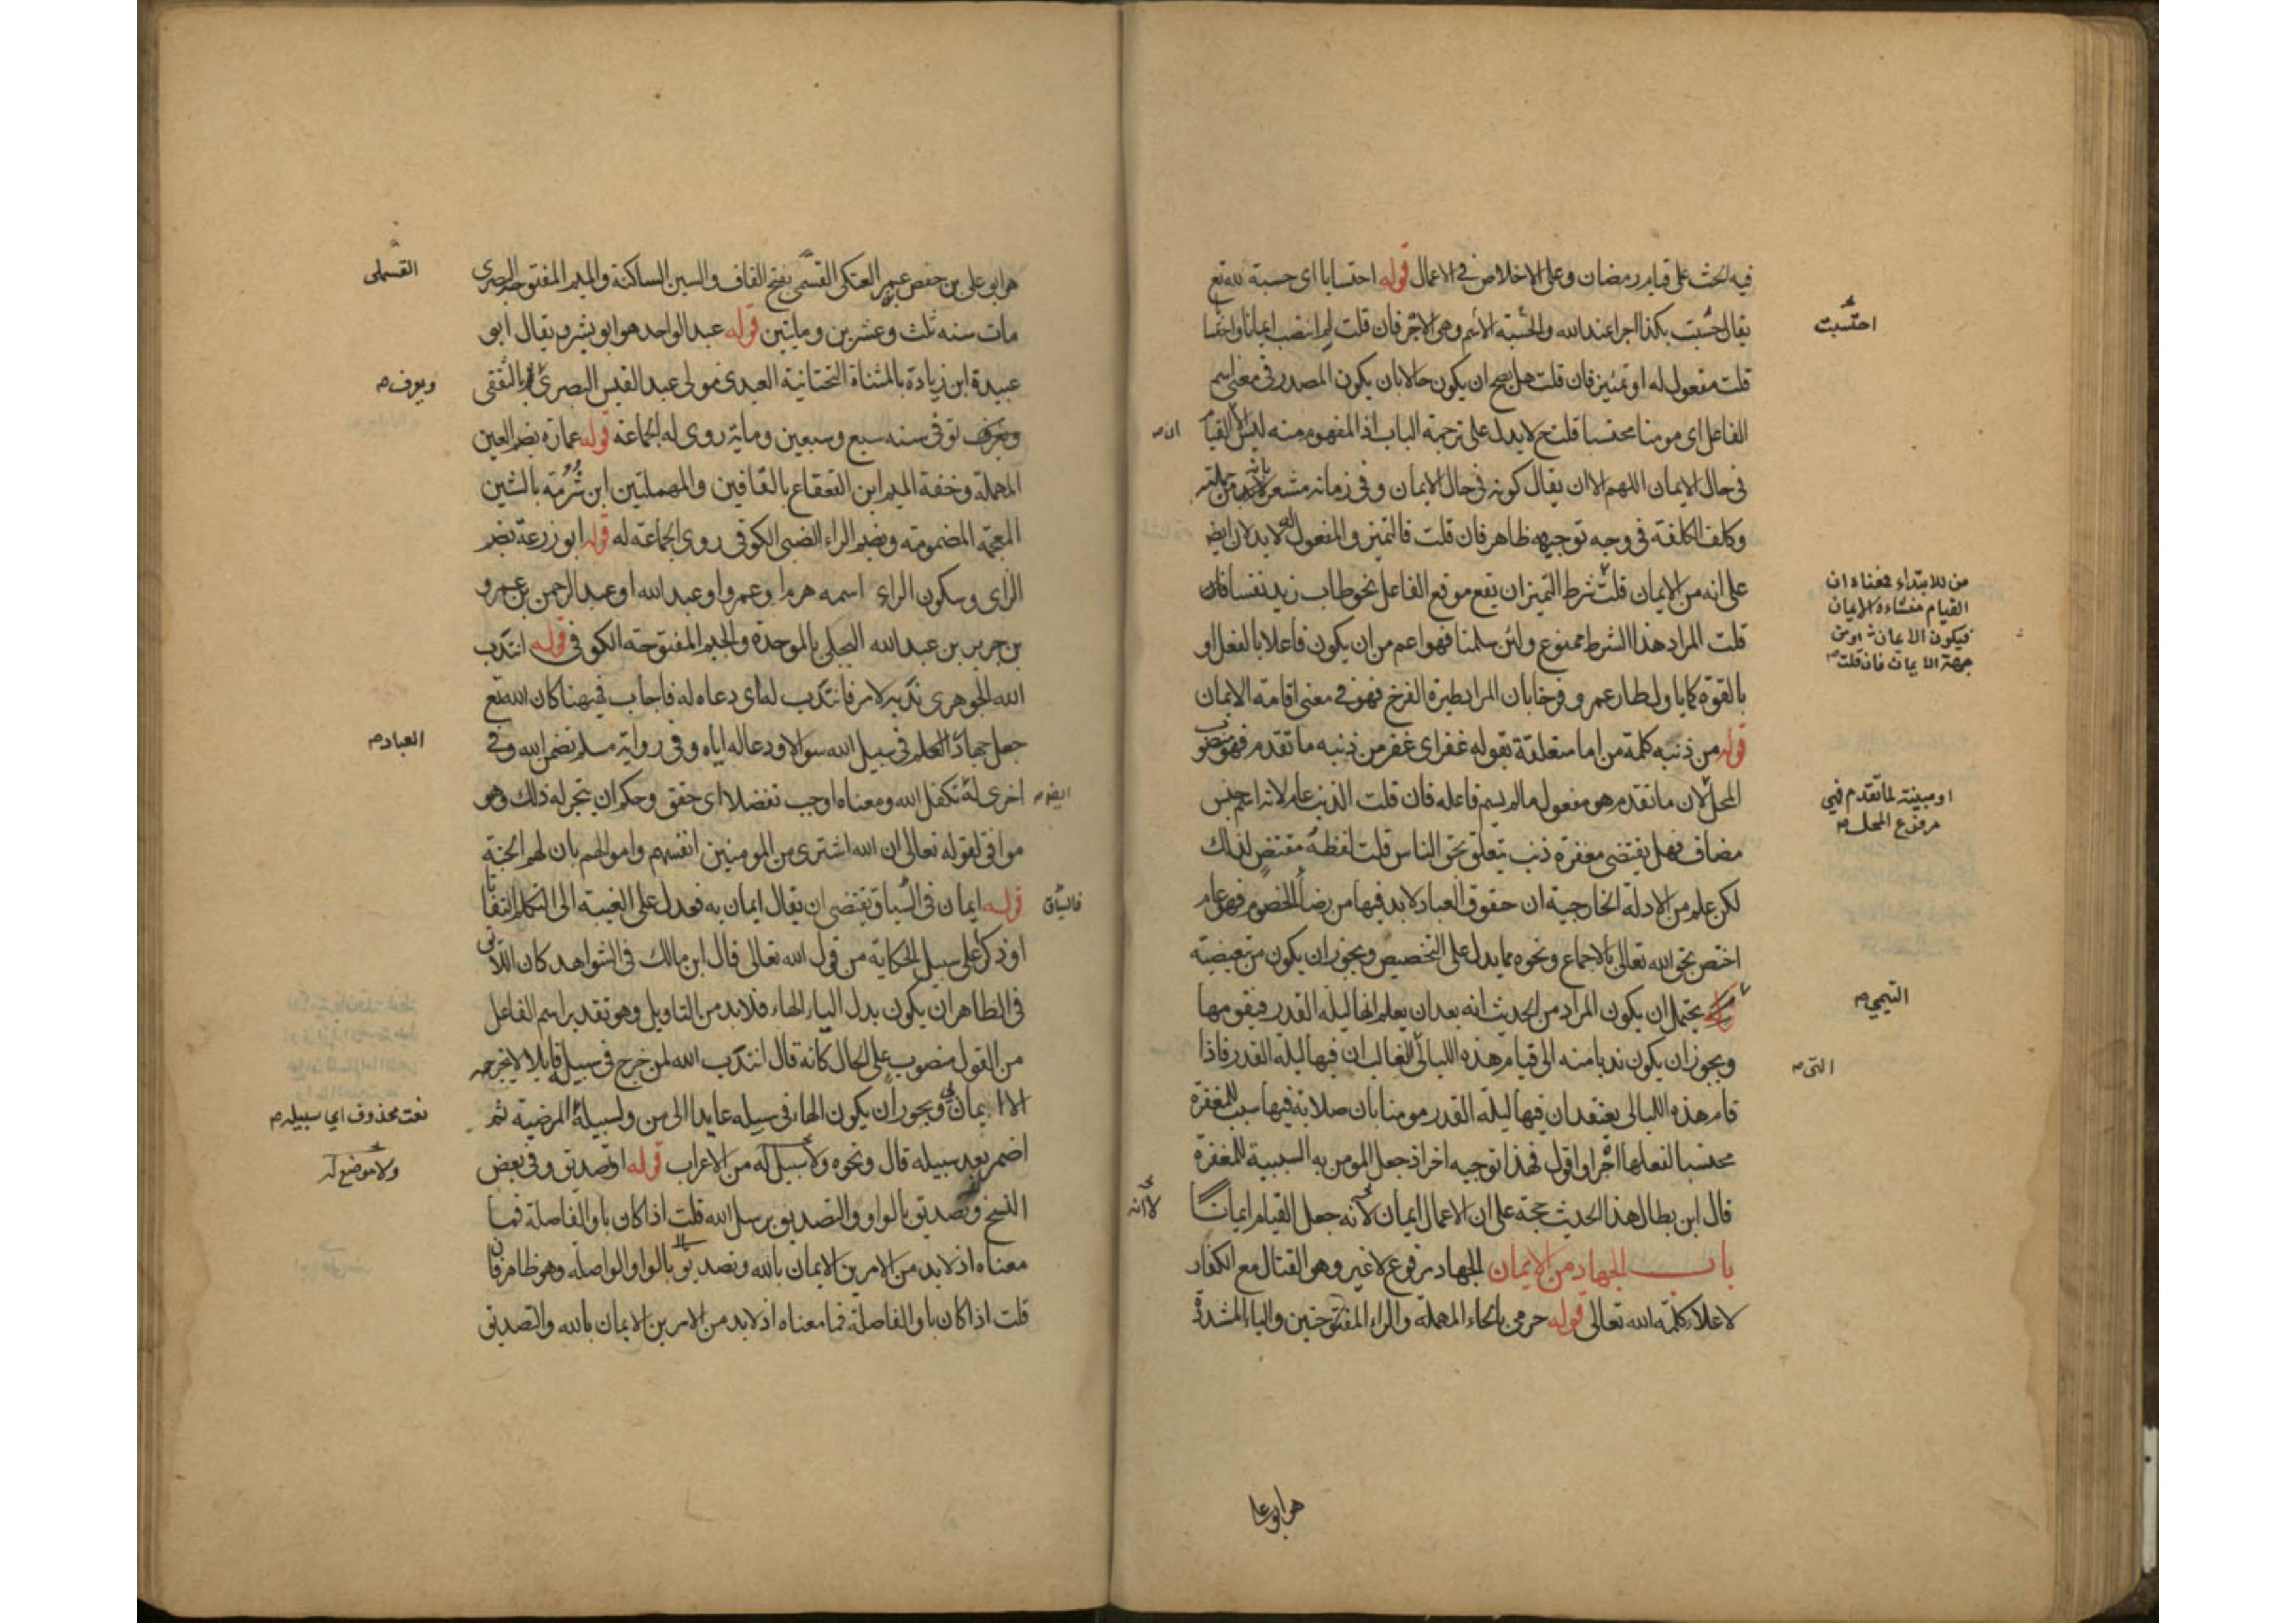 فيه الحث على قيام رمضان وعلى الاخلاص في الاعمال قوله احتسابا اى حسبة لله تع
يقال احتسبت بكذا اجرا عند الله والحسبة الاسم وهى الاجر فان قلت لم انتصب ايمانا واحتسابا
قلت مفعول له او تمييز فان قلت هل يصح ان يكون حالا بان يكون المصدر فى معنى اسم
الفاعل اى مومنا محتسبا قلت ح لا يدل على ترجمة الباب اذ المفهوم منه ليس الا القيام
فى حال الايمان اللهم الا ان يقال كونه فى حال الايمان وفى زمانه مشعر بانه من جملته
وكلف الكلفة فى وجه توجيهه ظاهر فان قلت فالتمييز والمفعول له لا يدلان ايضا
على انه من الايمان قلت شرط التميز ان يقع موقع الفاعل نحو طاب زيد نفسا فان
قلت المراد هذا الشرط ممنوع ولئن سلمنا فهو اعم من ان يكون فاعلا بالفعل او
بالقوة كما ياول طار عمرو فرخا بان المراد طيره الفرخ فهو في معنى اقامة الايمان
قوله من ذنبه كلمة من اما متعلقة بقوله غفر اى غفر من ذنبه ما تقدم فهو منصوب
المحل لان ما تقدم هو مفعول ما لم يسم فاعله فان قلت الذنب عام لانه اسم جنس
مضاف فهل يقتضى مغفرة ذنب يتعلق بحق الناس قلت لفظه مقتض لذلك
لكن علم من الادلة الخارجية ان حقوق العباد لا بد فيها من رضا الخصوم فهو عام
اختص بحق الله تعالى بالاجماع ونحوه مما يدل على التخصيص ويجوز ان يكون من تبعيضية
يحتمل ان يكون المراد من الحديث انه بعد ان يعلم انها ليلة القدر فيقومها
ويجوز ان يكون ندبا منه الى قيام هذه الليالى الغالب ان فيها ليلة القدر فاذا
قام هذه الليالى يعتقد ان فيها ليلة القدر مومنا بان صلاته فيها سبب للمغفرة
محتسبا لفعلها اجرا واقول فهذا توجيه اخر اذ جعل المومن به السببية للمغفرة
قال ابن بطال هذا الحديث حجة على ان الاعمال ايمان لانه جعل القيام ايمانا
باب الجهاد من الايمان الجهاد مرفوع لا غير وهو القتال مع الكفار
لاعلاء كلمة الله تعالى قوله حرمى بالحاء المهملة والراء المفتوحتين والياء المشددة
هو ابو على
احتسبت
ان صح
من للابتداء فمعناه ان
القيام منشاءه الايمان
فيكون الايمان او من
جهة الايمان فان قلت صح
او مبينة لما تقدم فهى
مرفوع المحل صح
التيمي صح
التى صح
لا انه
هو ابو على بن حفص عمر العتكى القسملى بفتح القاف والسين الساكنة والميم المفتوحة البصرى
مات سنه ثلث وعشرين وماتين قوله عبد الواحد هو ابو بشر ويقال ابو
عبيدة ابن زيادة بالمثناة التحتانية العبدى مولى عبد القيس البصرى بالثقفى
ويعرف توفى سنه سبع وسبعين وماية روى له الجماعة قوله عمارة بضم العين
المهملة وخفة الميم ابن القعقاع بالقافين والمهملتين ابن شبرمة بالشين
المعجمة المضمومة وبضم الراء الضبى الكوفى روى الجماعة له قوله ابو زرعة بضم
الزاى وسكون الراء اسمه هرم او عمرو او عبد الله او عبد الرحمن بن عمرو
بن جرير بن عبد الله البجلى بالموحدة والجيم المفتوحة الكوفى قوله انتدب
الله الجوهرى ندبه لامر فانتدب له اى دعاه له فاجاب فههنا كان الله تع
جعل جهاد العباد فى سبيل الله سوالا ودعا له اياه وفى رواية مسلم تضمن الله وفى
اخرى له تكفل الله ومعناه اوجب تفضلا اى حقق وحكم ان ينجز له ذلك وهو
موافق لقوله تعالى ان الله اشترى من المومنين انفسهم واموالهم بان لهم الجنة
قوله ايمان فى السياق يقتضى ان يقال ايمان به فعدل على الغيبة الى التكلم التفاتا
او ذكر على سبيل الحكاية من قول الله تعالى قال ابن مالك فى الشواهد كان اللائق
فى الظاهر ان يكون بدل الياء الهاء فلابد من التاويل وهو تقدير اسم الفاعل
من القول منصوب على الحال كانه قال انتدب الله لمن خرج فى سبيله قايلا لا يخرجه
الا ايمان بى ويجوز ان يكون الهاء فى سبيله عايدا الى من ولسبيله المرضية ثم
اضمر بعد سبيله قال ونحوه ولا سبيل له من الاعراب قوله او تصديق وفى بعض
النسخ وتصديق بالواو والتصديق برسل الله قلت اذا كان باو الفاصلة فما
معناه اذ لا بد من الامرين الايمان بالله وتصديق بالواو الواصلة وهو ظاهر فان
قلت اذا كان باو الفاصلة فما معناه اذ لا بد من الامرين الايمان بالله والتصديق
القسملى
ويعرف صح
العباد صح
ايضا صح
فالسياق
نعت محذوف اي سبيله صح
ولا موضع له